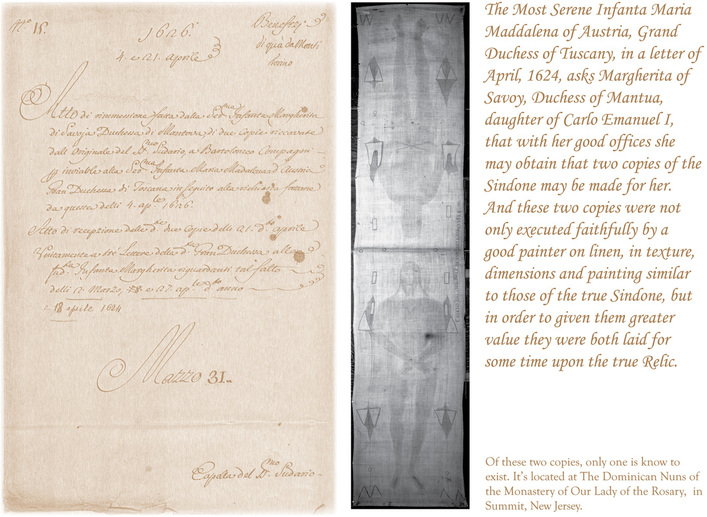 No. 15.
1626.
4 e 21. Aprile
Benefizj
di quà da Monti
Atto di rimmessione fatta dalla Ser.ma Infanta Margherita
di Savoja Duchessa di Mantova di due Copie ricavate
dall'Originale del S. Sudario, a Bartolomeo Compagni
inviabile alla Ser.ma Infanta Maria Madalena d'Austria
Gran Duchessa di Toscana in seguito alla richiesta fattane
da questa delli 4. ap.le 1626.
Atto di recezione delle d.e due Copie delli 21. d.o aprile
Unitamente a tre Lettere della d.a Gran Duchessa alla
Infanta Margherita riguardanti tal fatto
delli 17 Marzo, e 27. ap.le anno
e 18 aprile 1624
Mazzo 31.
Capella del S. Sudario
The Most Serene Infanta Maria
Maddalena of Austria, Grand
Duchess of Tuscany, in a letter of
April, 1624, asks Margherita of
Savoy, Duchess of Mantua,
daughter of Carlo Emanuel I,
that with her good offices she
may obtain that two copies of the
Sindone may be made for her.
And these two copies were not
only executed faithfully by a
good painter on linen, in texture,
dimensions and painting similar
to those of the true Sindone, but
in order to given them greater
value they were both laid for
some time upon the true Relic.
Of these two copies, only one is know to
exist. It's located at The Dominican Nuns of
the Monastery of Our Lady of the Rosary, in
Summit, New Jersey.